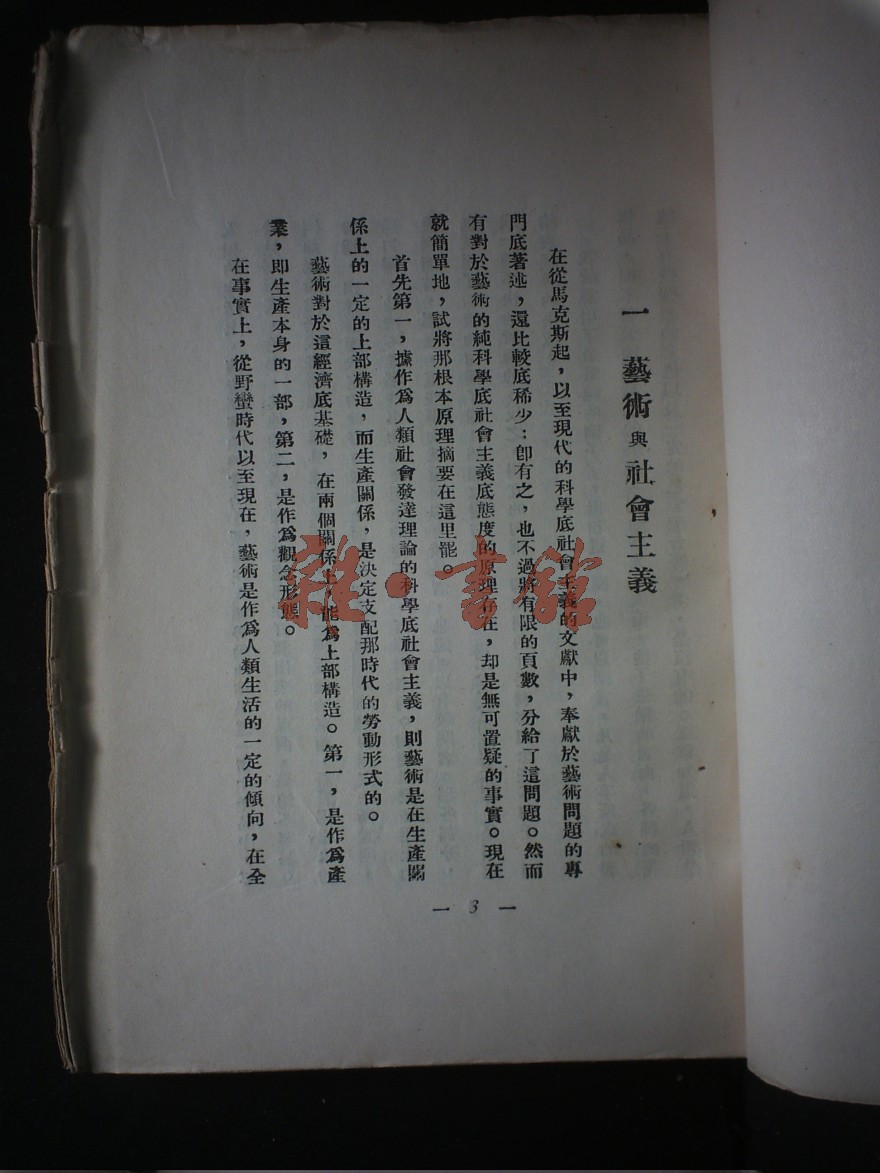 一 藝術與社會主義
在從馬克斯起，以至現代的科學底社會主義的文獻中，奉獻於藝術問題的專
門底著述，還比較底稀少：卽有之，也不過將有限的頁數，分給了這問題。然而
有對於藝術的純科學底社會主義底態度的原理存在，却是無可置疑的事實。現在
就簡單地，試將那根本原理摘要在這里罷。
首先第一，據作爲人類社會發達理論的科學底社會主義，則藝術是在生產關
係上的一定的上部構造，而生產關係，是決定支配那時代的勞動形式的。
藝術對於這經濟底基礎，在兩個關係上，能爲上部構造。第一，是作爲產
業，即生產本身的一部，第二，是作爲觀念形態。
在事實上，從野蠻時代以至現在，藝術是作爲人類生活的一定的傾向，在全
— 3 —
雜·書館